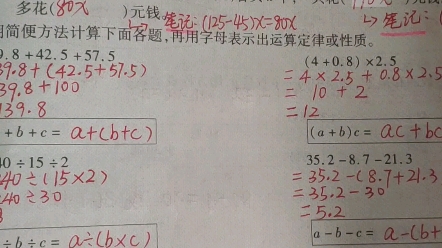 多花(80x )元钱 笔记:(125-45)x=80x
用简便方法计算下面各题,再用字母表示出运算定律或性质。
9.8+42.5+57.5
39.8+(42.5+57.5)
39.8+100
139.8
+b+c= a+(b+c)
(4+0.8)×2.5
=4×2.5+0.8×2.5
=10+2
=12
(a+b)c= ac+bc
40÷15÷2
240÷(15×2)
240÷30
÷b÷c= a÷(b×c)
35.2-8.7-21.3
=35.2-(8.7+21.3
=35.2-30
=5.2
a-b-c= a-(b+